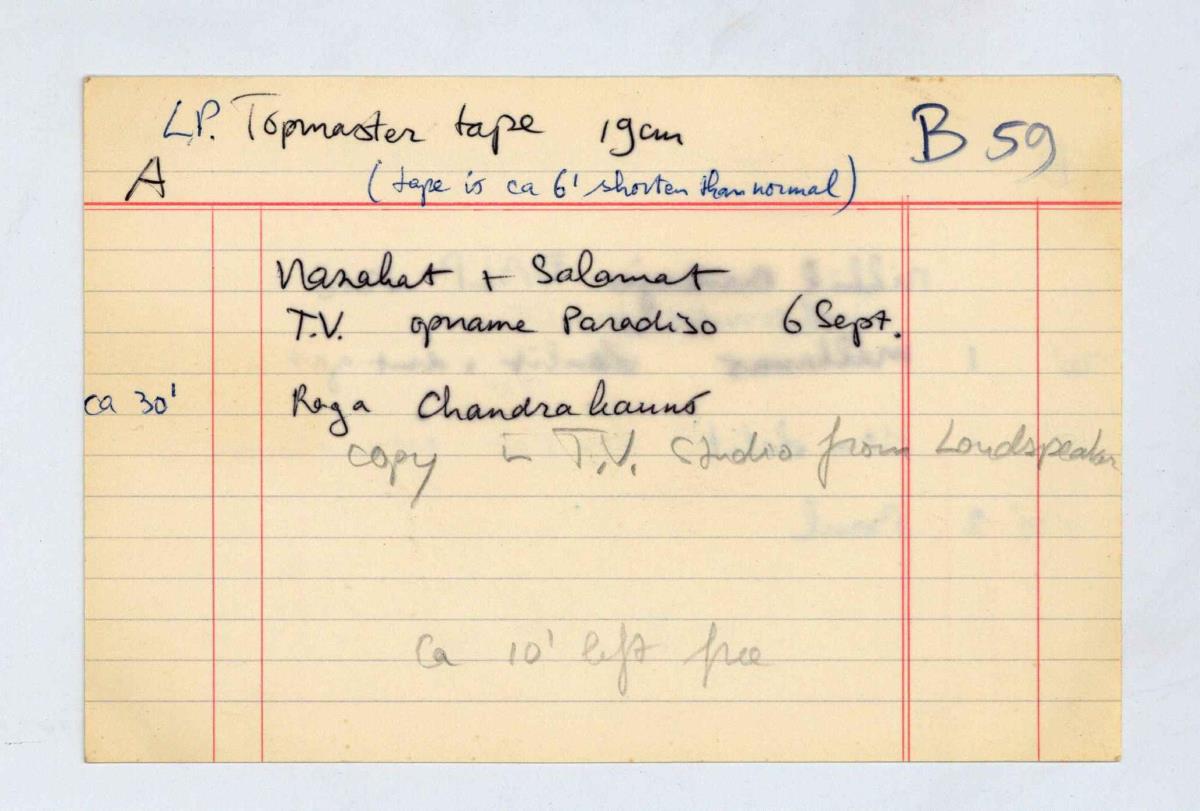 LP. Topmaster tape 19cm
B 59
A
(tape is ca 6' shorten than normal)
Nazakat + Salamat
T.V. opname Paradiso 6 Sept.
ca 30' Raga Chandrakauns
copy in T.V. Studio from Loudspeaker
Ca 10' left free